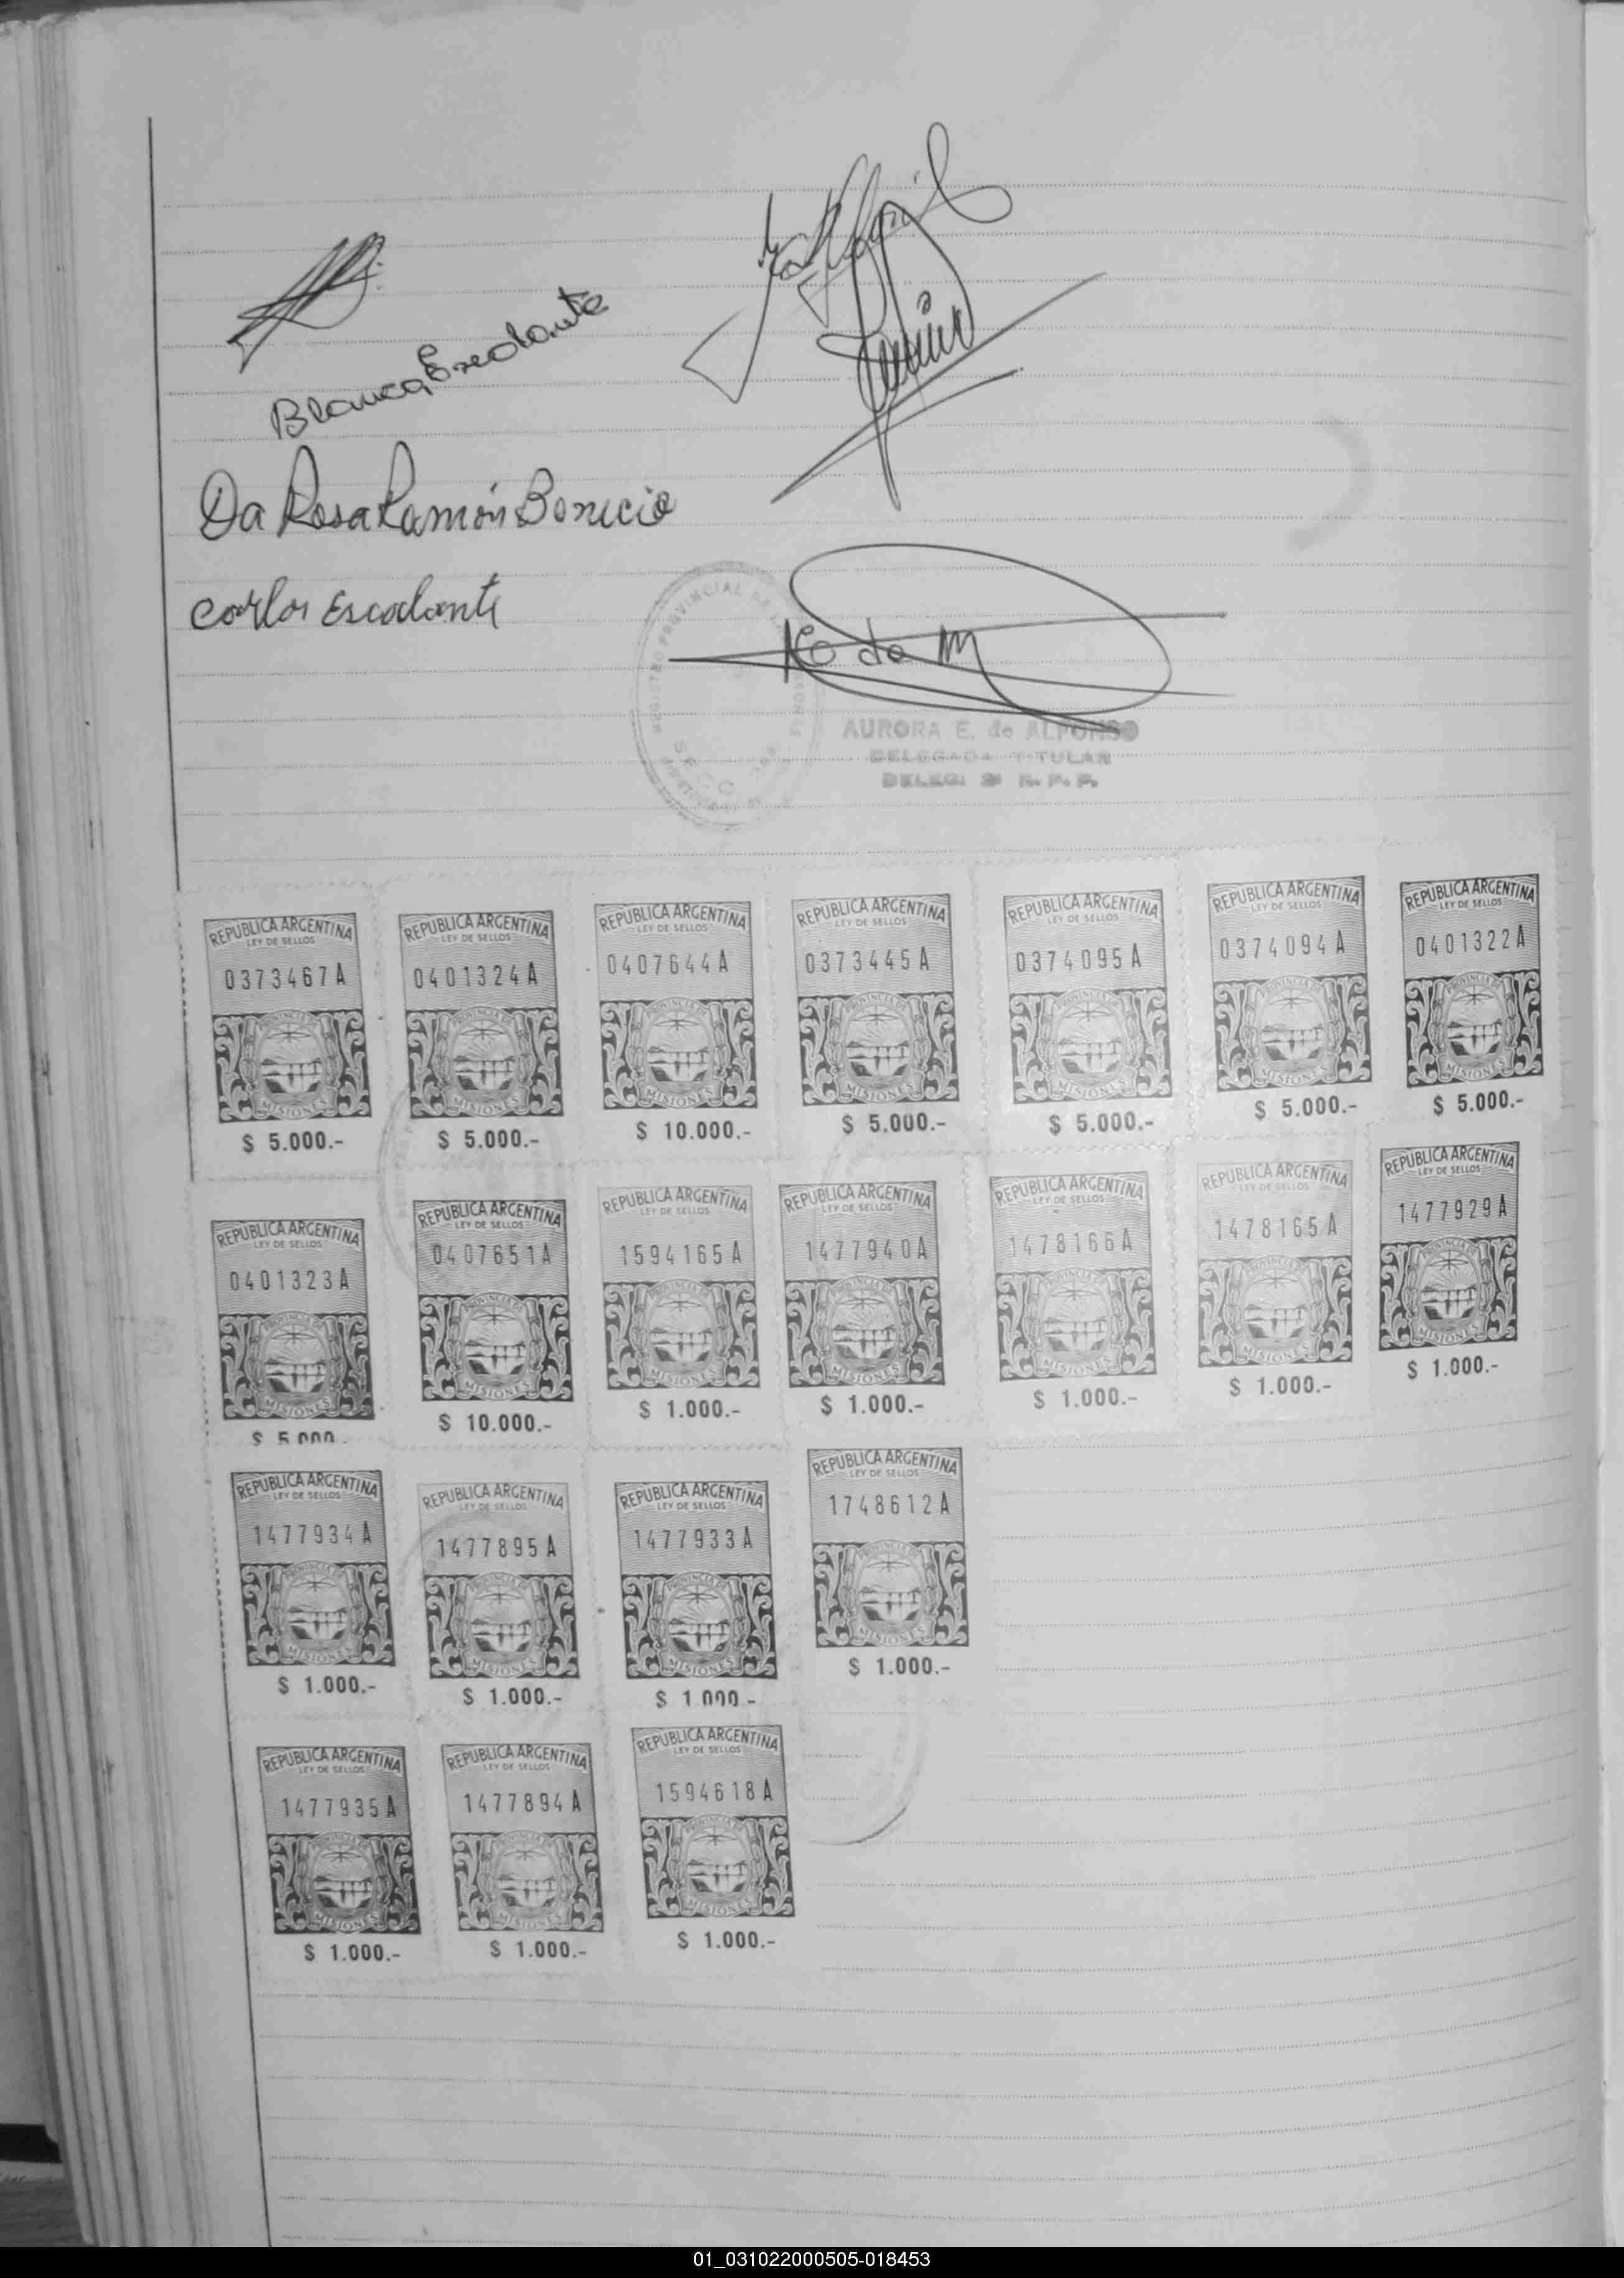 Blanca Escalante
Da Rosa Ramón Bonicio
Carlos Escalante
AURORA E. de ALFONSO
DELEGADA TITULAR
REPUBLICA ARGENTINA REPUBLICA ARGENTINA REPUBLICA ARGENTINA REPUBLICA ARGENTINA REPUBLICA ARGENTINA REPUBLICA ARGENTINA REPUBLICA ARGENTINA
LEY DE SELLOS LEY DE SELLOS LEY DE SELLOS LEY DE SELLOS LEY DE SELLOS LEY DE SELLOS LEY DE SELLOS
0373467A 0401324A 0407644A 0373445A 0374095A 0374094A 0401322A
PROVINCIA DE PROVINCIA DE PROVINCIA DE PROVINCIA DE PROVINCIA DE PROVINCIA DE PROVINCIA DE
MISIONES MISIONES MISIONES MISIONES MISIONES MISIONES MISIONES
$ 5.000.- $ 5.000.- $ 10.000.- $ 5.000.- $ 5.000.- $ 5.000.- $ 5.000.-
REPUBLICA ARGENTINA REPUBLICA ARGENTINA REPUBLICA ARGENTINA REPUBLICA ARGENTINA REPUBLICA ARGENTINA REPUBLICA ARGENTINA REPUBLICA ARGENTINA
LEY DE SELLOS LEY DE SELLOS LEY DE SELLOS LEY DE SELLOS LEY DE SELLOS LEY DE SELLOS LEY DE SELLOS
0401323A 0407651A 1594165A 1477940A 1478166A 1478165A 1477929A
PROVINCIA DE PROVINCIA DE PROVINCIA DE PROVINCIA DE PROVINCIA DE PROVINCIA DE PROVINCIA DE
MISIONES MISIONES MISIONES MISIONES MISIONES MISIONES MISIONES
$ 5.000.- $ 10.000.- $ 1.000.- $ 1.000.- $ 1.000.- $ 1.000.- $ 1.000.-
REPUBLICA ARGENTINA REPUBLICA ARGENTINA REPUBLICA ARGENTINA REPUBLICA ARGENTINA
LEY DE SELLOS LEY DE SELLOS LEY DE SELLOS LEY DE SELLOS
1477934A 1477895A 1477933A 1748612A
PROVINCIA DE PROVINCIA DE PROVINCIA DE PROVINCIA DE
MISIONES MISIONES MISIONES MISIONES
$ 1.000.- $ 1.000.- $ 1.000.- $ 1.000.-
REPUBLICA ARGENTINA REPUBLICA ARGENTINA REPUBLICA ARGENTINA
LEY DE SELLOS LEY DE SELLOS LEY DE SELLOS
1477935A 1477894A 1594618A
PROVINCIA DE PROVINCIA DE PROVINCIA DE
MISIONES MISIONES MISIONES
$ 1.000.- $ 1.000.- $ 1.000.-
01_031022000505-018453